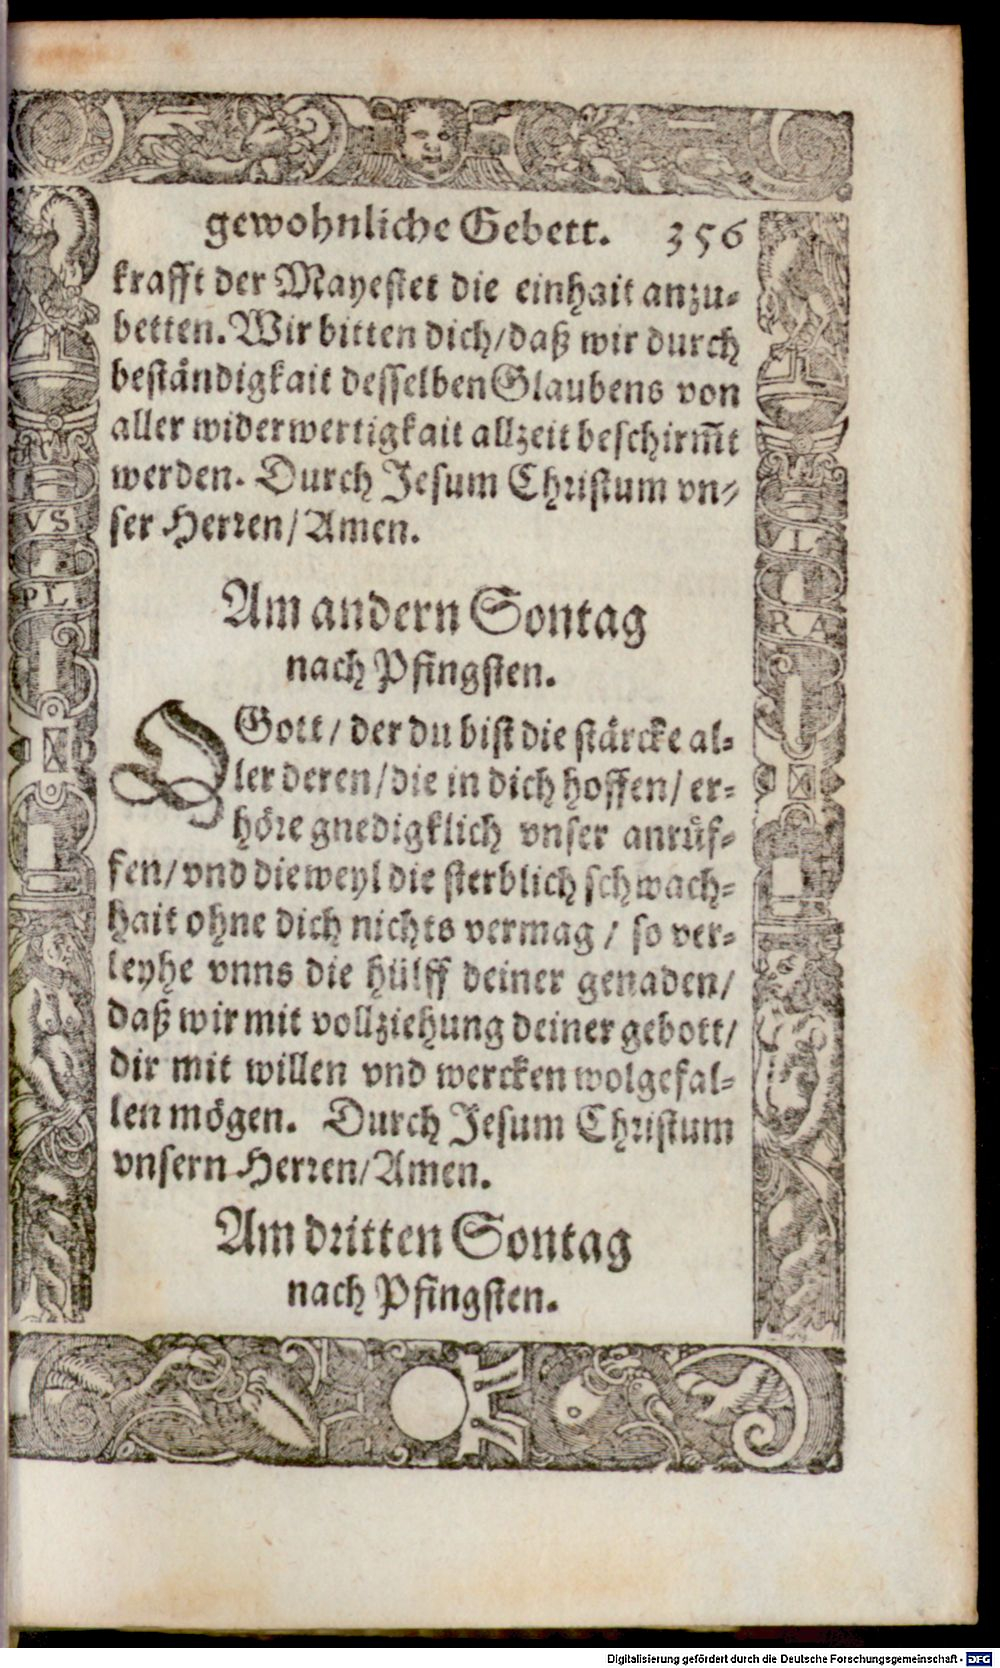 gewohnliche Gebett. 356
krafft der Mayestet die einhait anzu-
betten. Wir bitten dich/daß wir durch
beständigkait desselben Glaubens von
aller widerwertigkait allzeit beschirm̅t
werden. Durch Jesum Christum vn-
ser Herren/Amen.
Am andern Sontag
nach Pfingsten.
O Gott/ der du bist die stärcke al-
ler deren/die in dich hoffen/ er-
höre gnedigklich vnser anrüf-
fen/vnd dieweyl die sterblich schwach-
hait ohne dich nichts vermag / so ver-
leyhe vnns die hülff deiner genaden/
daß wir mit vollziehung deiner gebott/
dir mit willen vnd wercken wolgefal-
len mögen. Durch Jesum Christum
vnsern Herren/Amen.
Am dritten Sontag
nach Pfingsten.
VS
PL
VL
RA
Digitalisierung gefördert durch die Deutsche Forschungsgemeinschaft - DFG